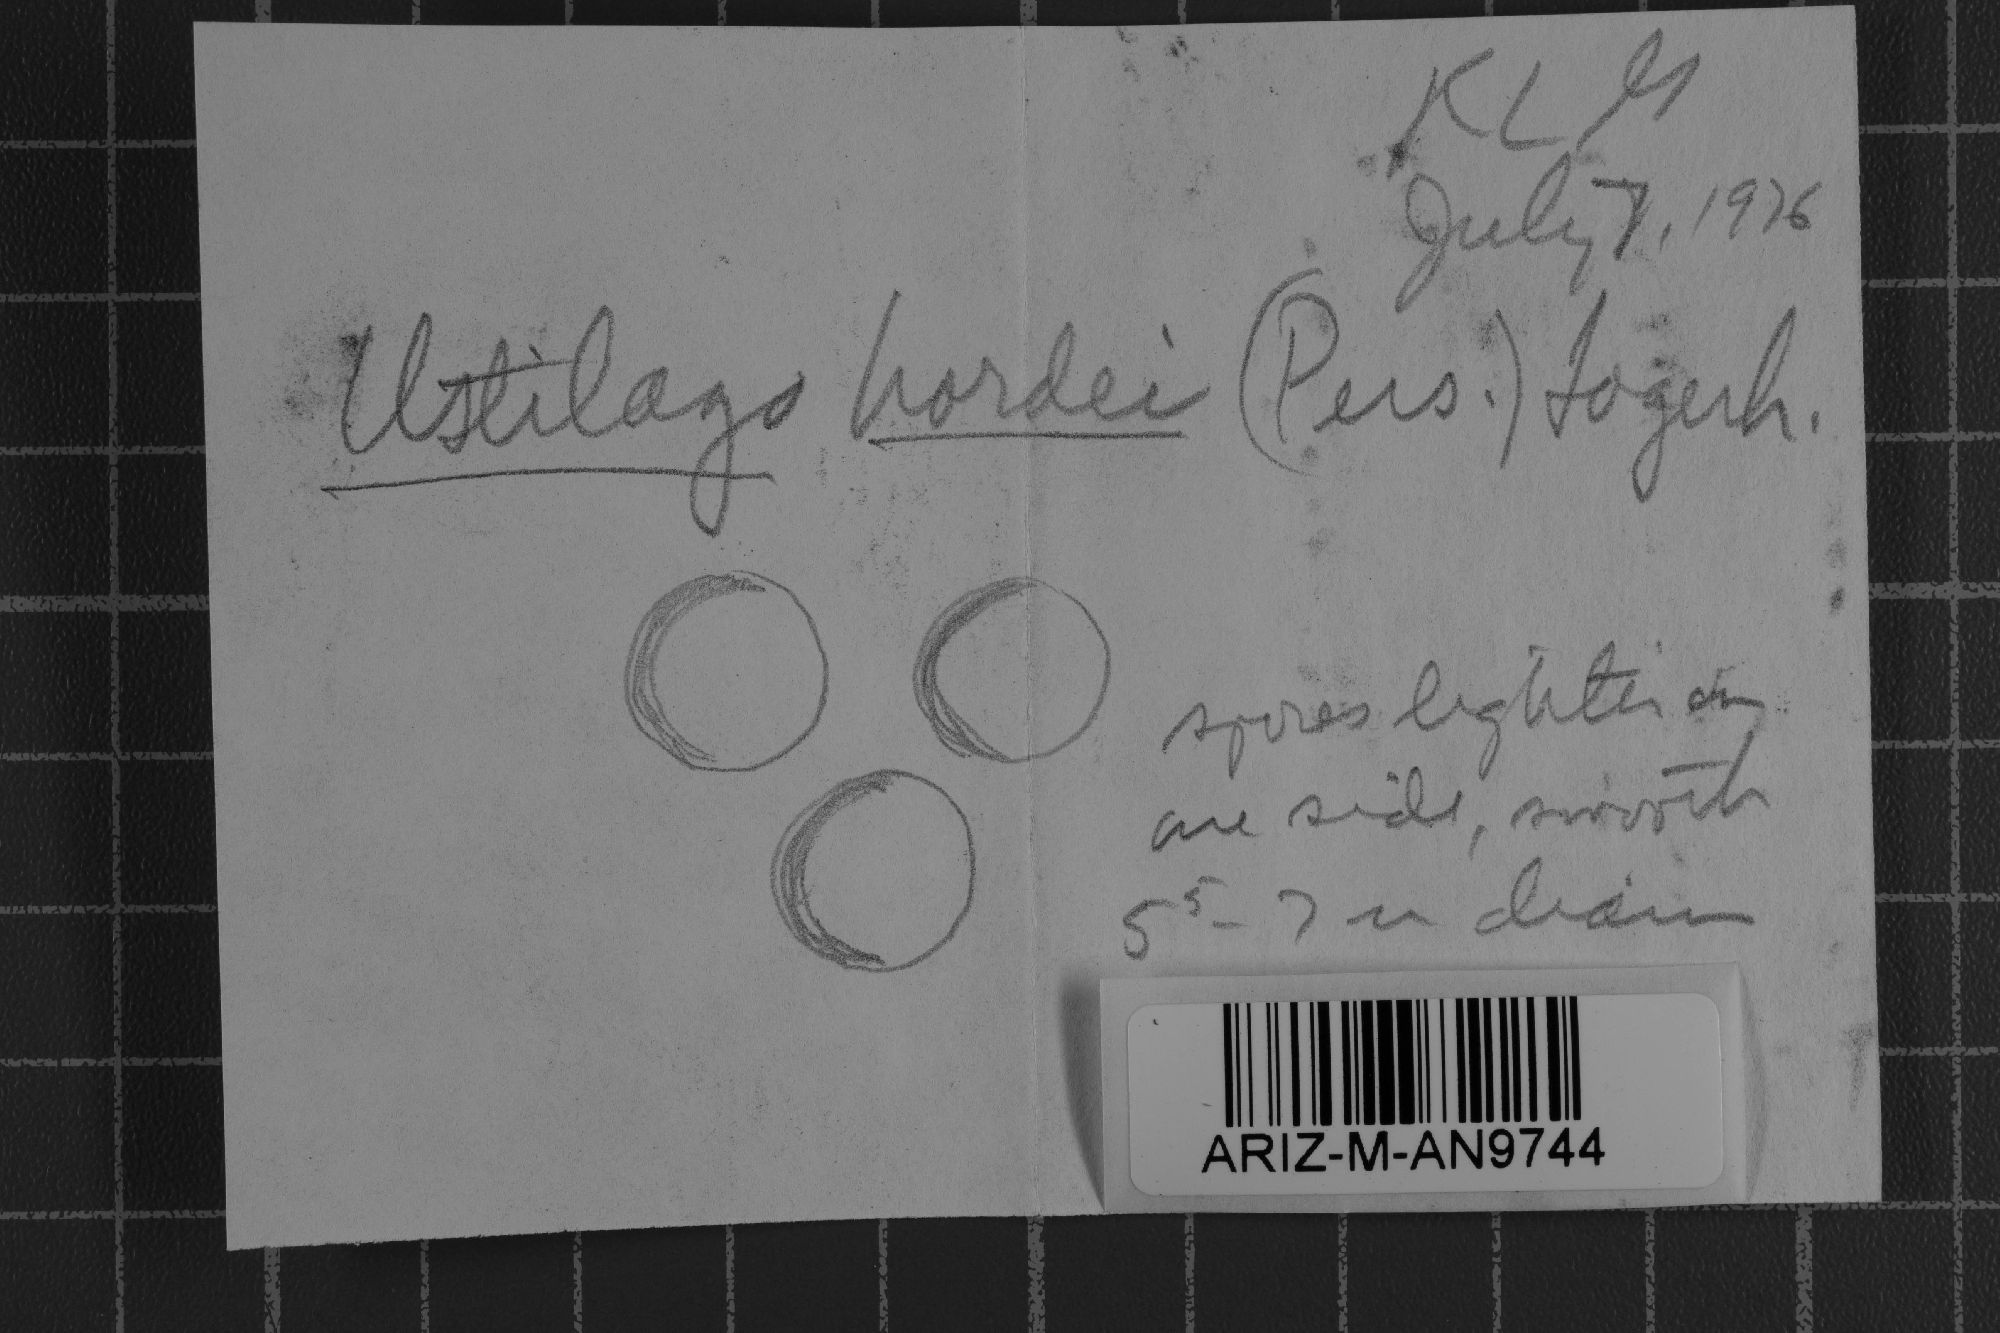 KL
July 7, 1976
Ustilago hordei (Pers.) Lagerh.
spores lighter on
one side, smooth
5⁵-7 u diam
ARIZ-M-AN9744